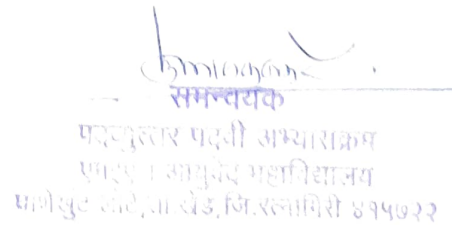 समन्वयक
पदव्युत्तर पदवी अभ्यासक्रम
आयुर्वेद महाविद्यालय
लोटे, ता. खेड, जि. रत्नागिरी ४१५७२२